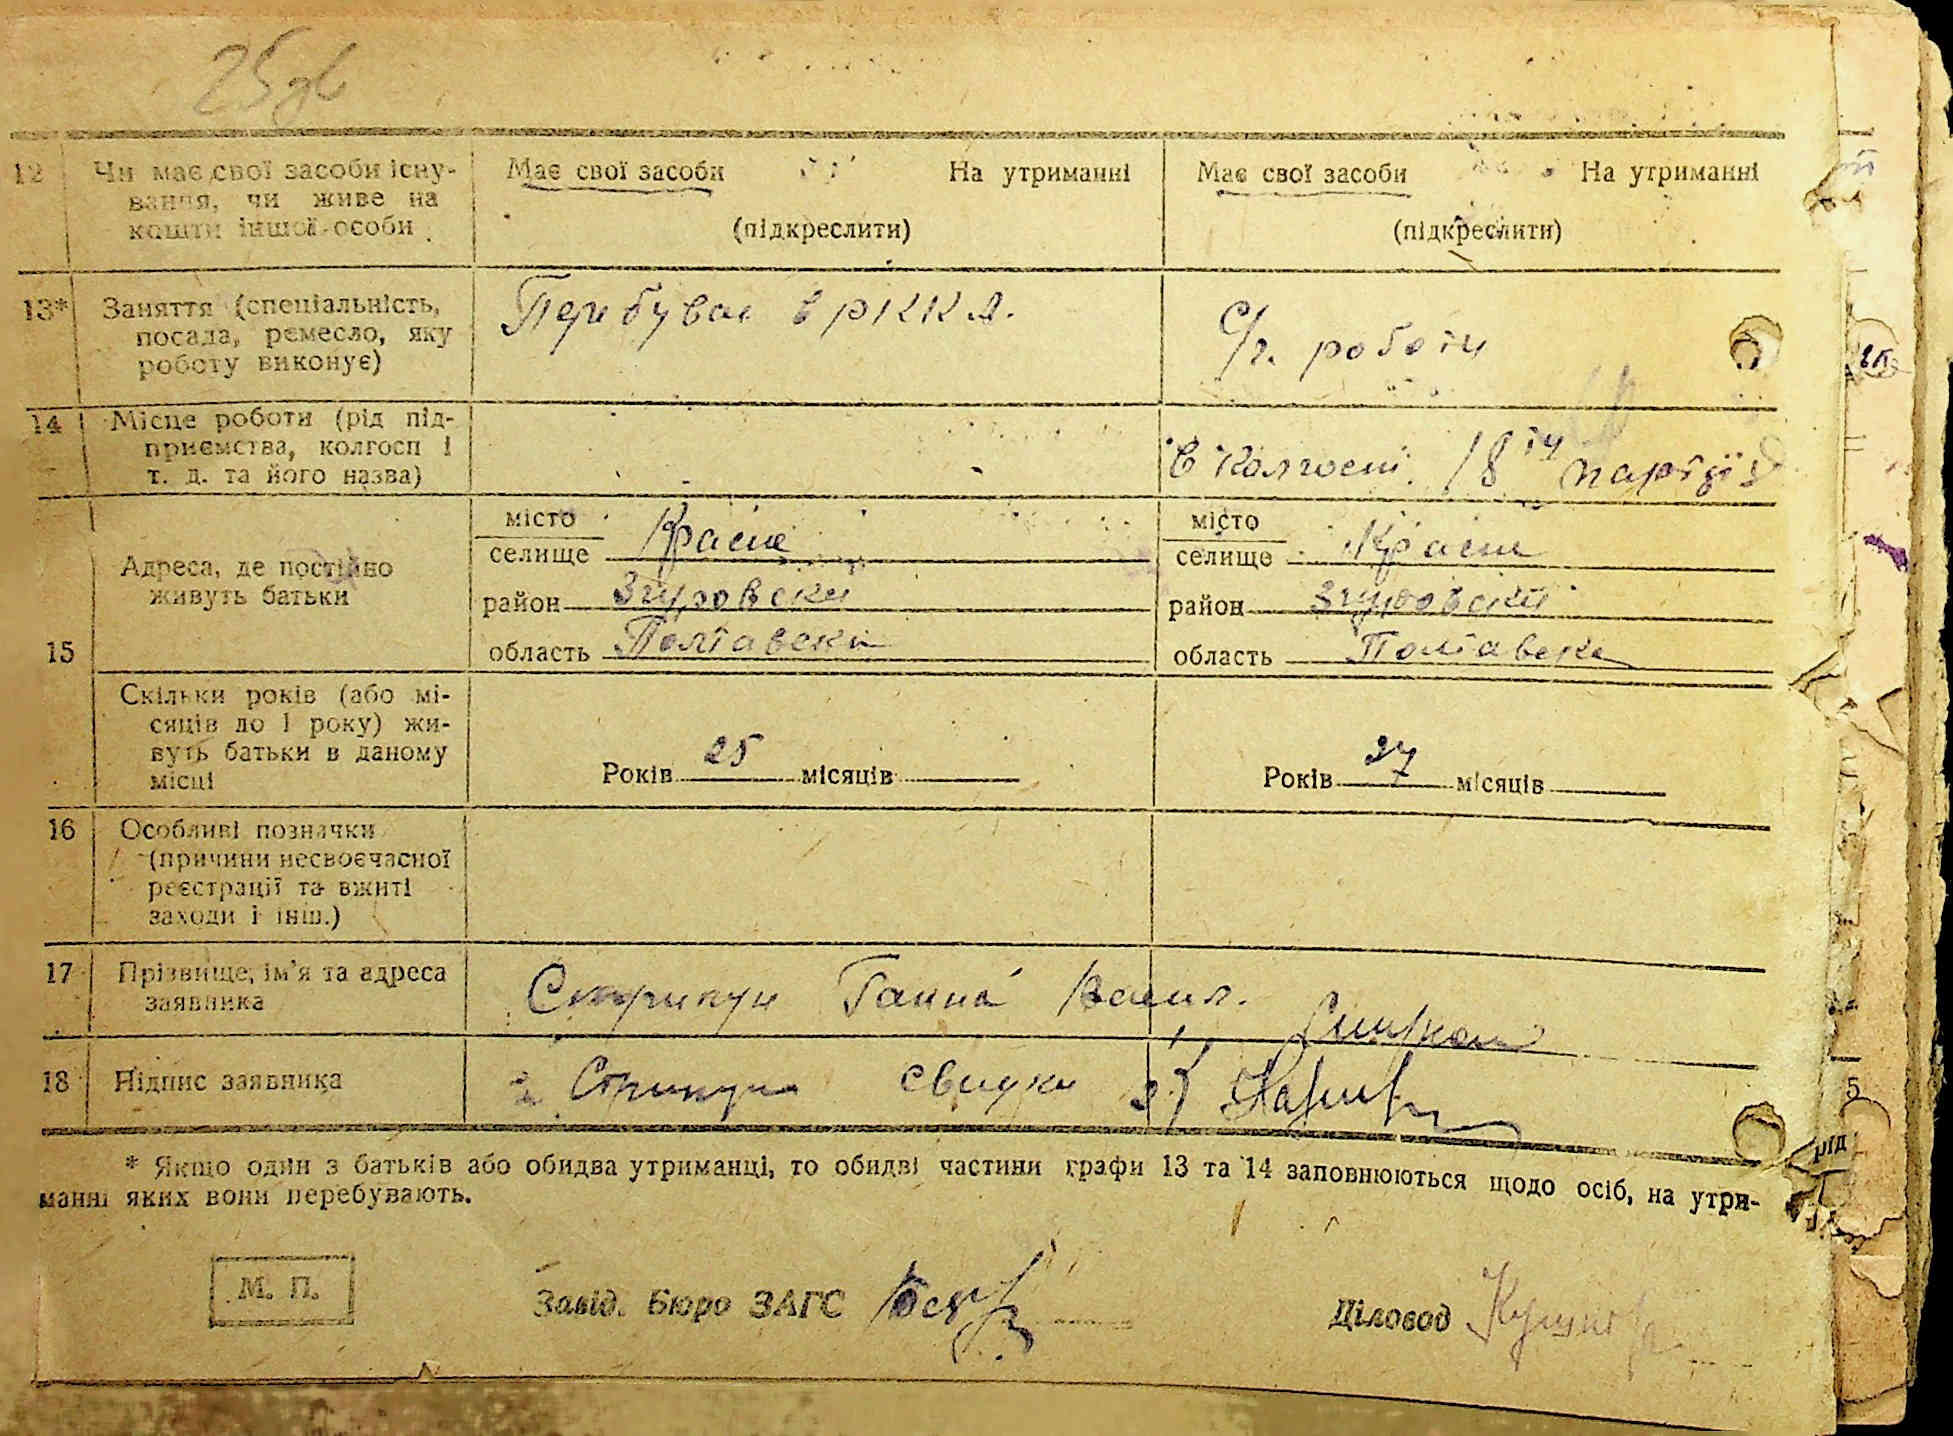 25
12 Чи має свої засоби існу-
вання, чи живе на
кошти іншої особи
Має свої засоби На утриманні
(підкреслити)
Має свої засоби На утриманні
(підкреслити)
13* Заняття (спеціальність,
посада, ремесло, яку
роботу виконує)
Перебуває в РККА.
С/г. роботи
14 Місце роботи (рід під-
приємства, колгосп і
т. д. та його назва)
в колгоспі. 18 ти партзїзд
15 Адреса, де постійно
живуть батьки
місто
селище Красне
район Згуровски
область Полтавска
місто
селище Красне
район Згуровский
область Полтавска
Скільки років (або мі-
сяців до 1 року) жи-
вуть батьки в даному
місці
Років 25 місяців
Років 27 місяців
16 Особливі позначки
(причини несвоєчасної
реєстрації та вжиті
заходи і інш.)
17 Прізвище, ім'я та адреса
заявника
Скрипун Ганна Васил.
18 Підпис заявника
Скрипун свидки
* Якщо один з батьків або обидва утриманці, то обидві частини графи 13 та 14 заповнюються щодо осіб, на утри-
манні яких вони перебувають.
М. П.
Завід. Бюро ЗАГС
Діловод
5
рід